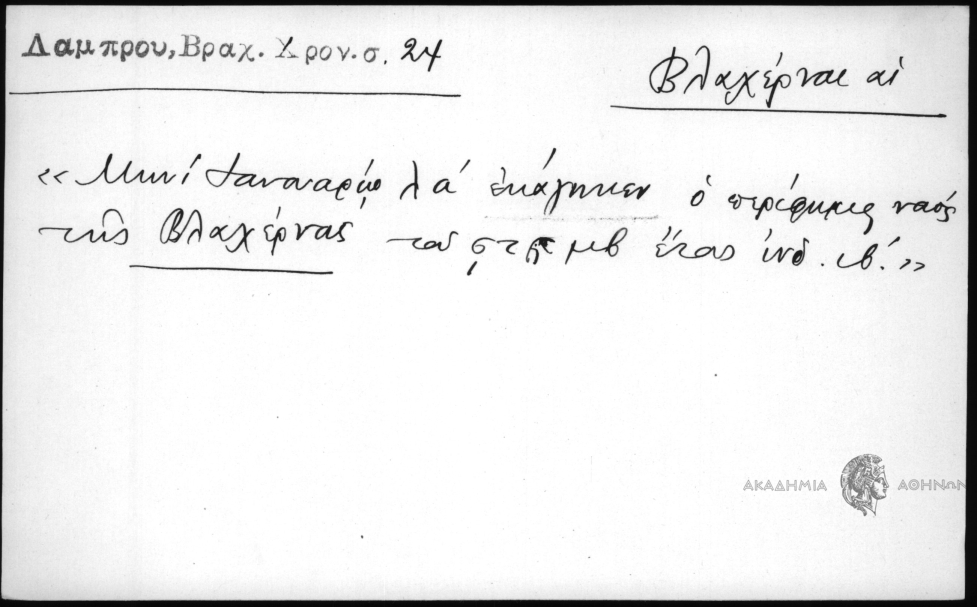 Λαμπρου, Βραχ. Χρον. σ. 24
Βλαχέρναι αἱ
«Μηνὶ Ἰανουαρίῳ λ α´ ἐκάγηκεν ὁ περίφημος ναός
τῆς Βλαχέρνας τοῦ μβ ἔτους ἰνδ. ιβ´.»
ΑΚΑΔΗΜΙΑ ΑΘΗΝΩΝ